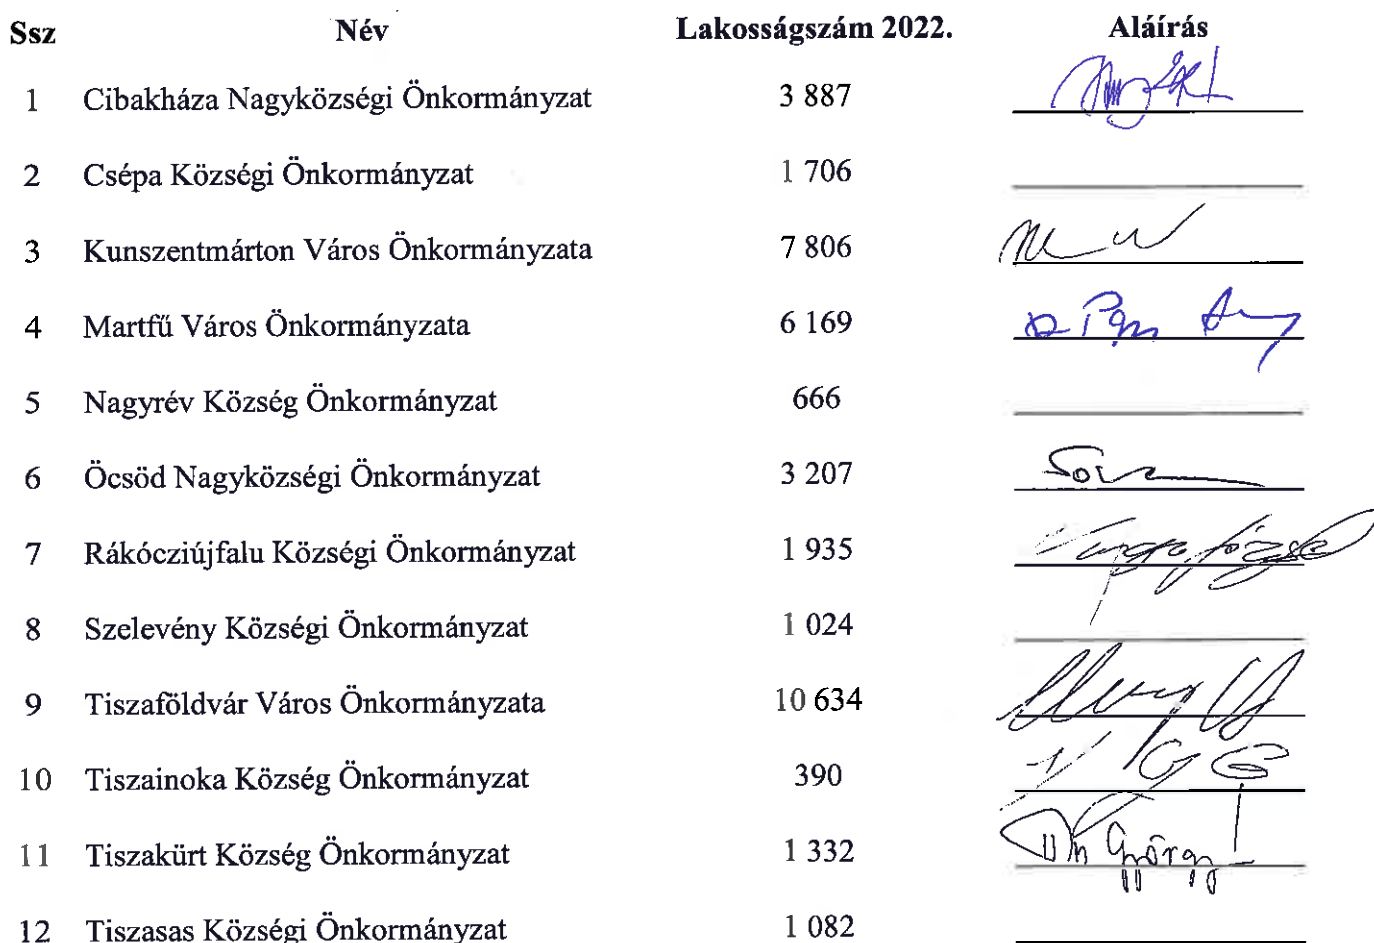 Ssz Név Lakosságszám 2022. Aláírás
1 Cibakháza Nagyközségi Önkormányzat 3 887
2 Csépa Községi Önkormányzat 1 706
3 Kunszentmárton Város Önkormányzata 7 806
4 Martfű Város Önkormányzata 6 169
5 Nagyrév Község Önkormányzat 666
6 Öcsöd Nagyközségi Önkormányzat 3 207
7 Rákócziújfalu Községi Önkormányzat 1 935 Varga József
8 Szelevény Községi Önkormányzat 1 024
9 Tiszaföldvár Város Önkormányzata 10 634
10 Tiszainoka Község Önkormányzat 390
11 Tiszakürt Község Önkormányzat 1 332 György
12 Tiszasas Községi Önkormányzat 1 082